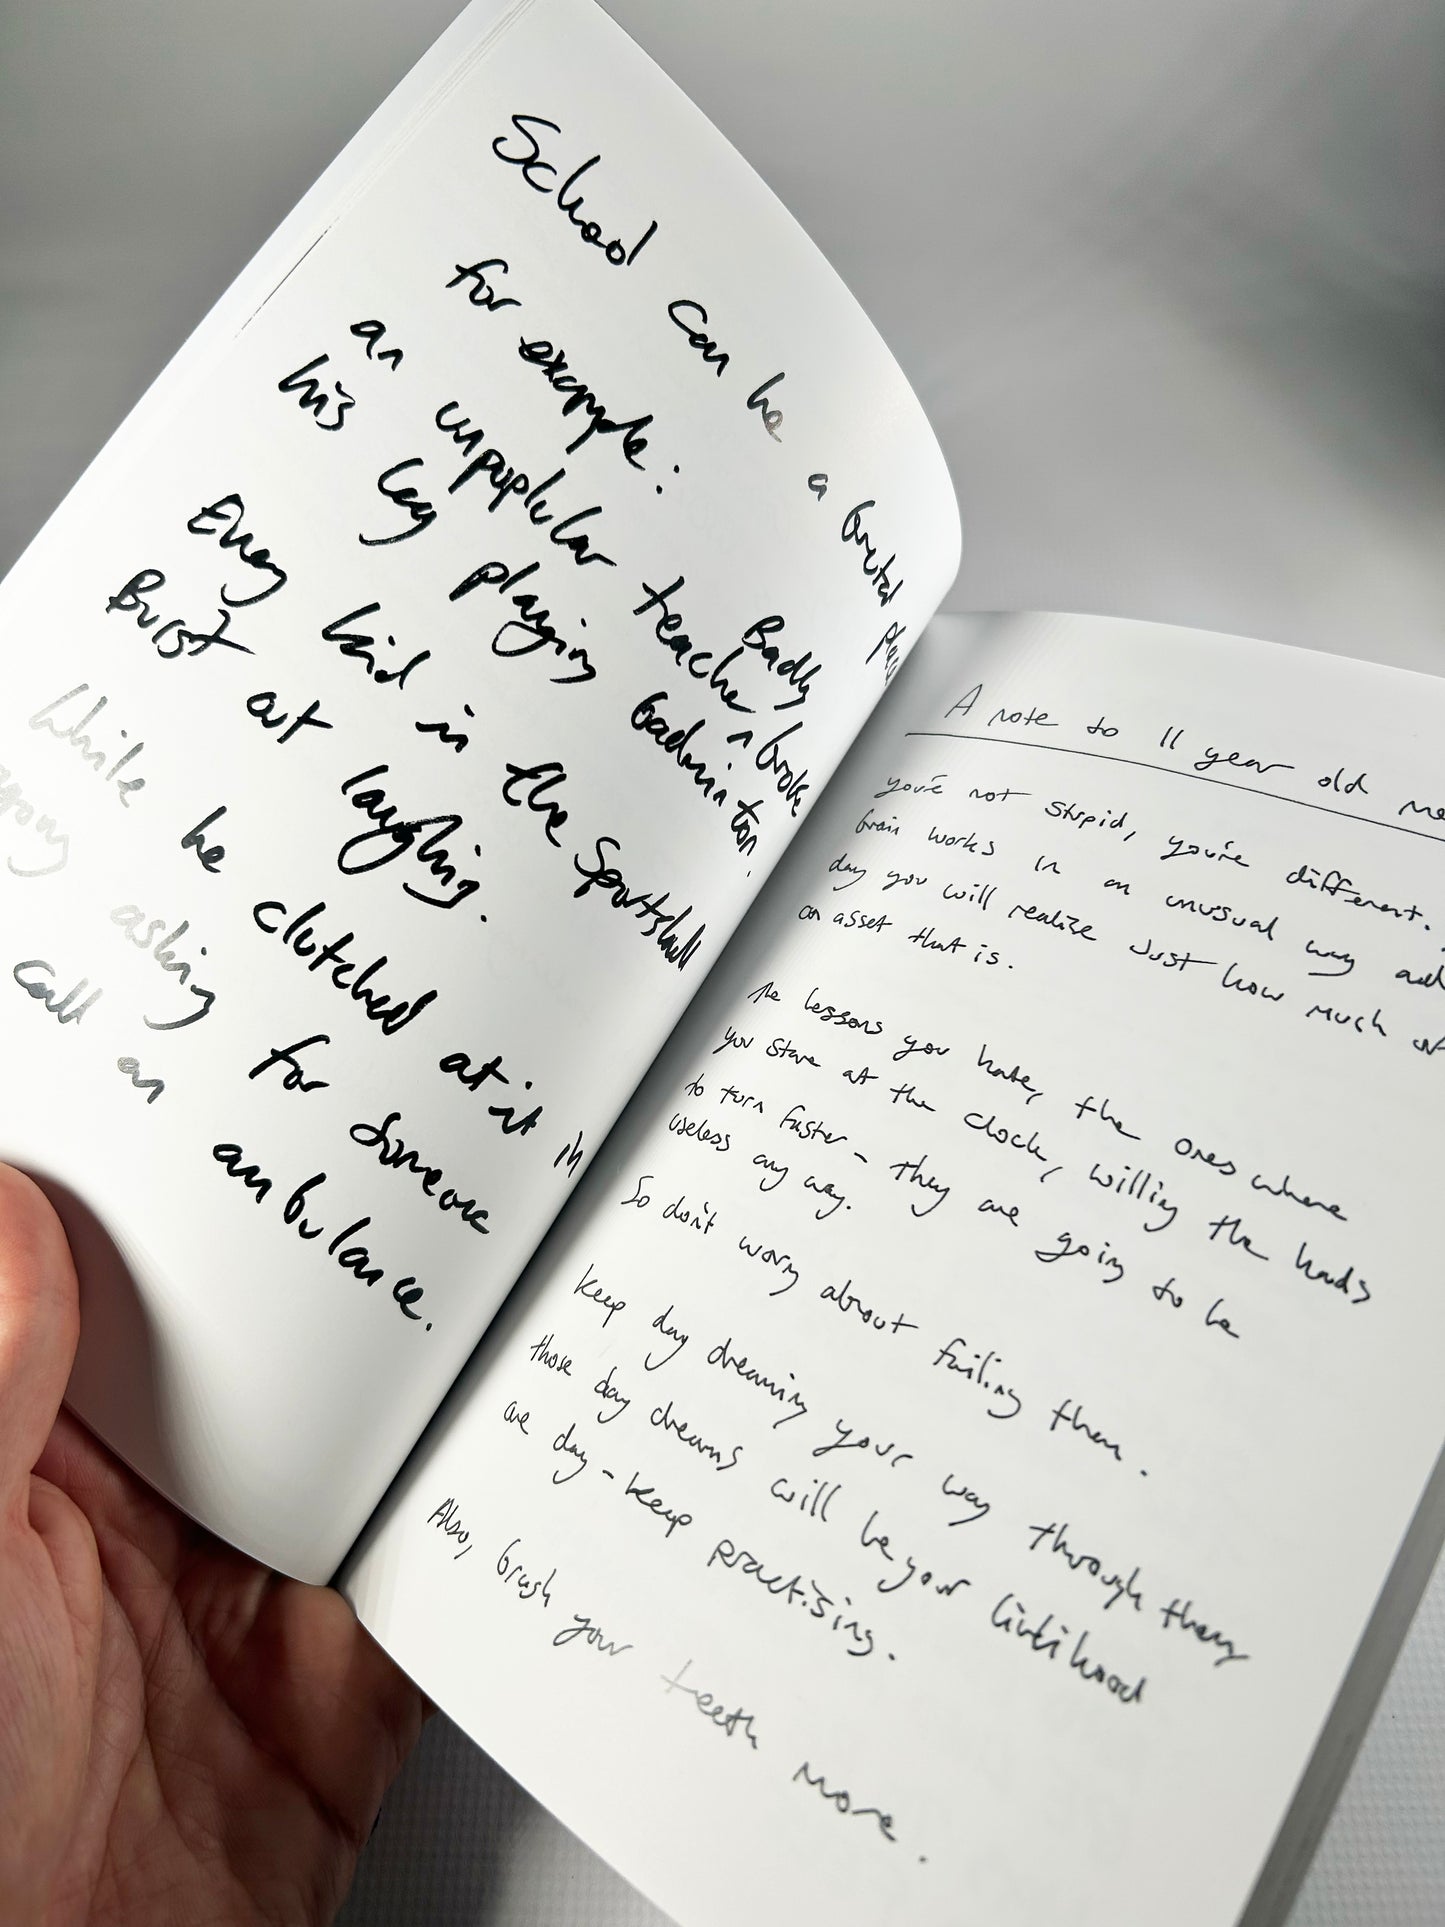 School can be a brutal place
for example:
an unpoplular teacher Badly ^ broke
his leg playing badminton.
Every kid in the Sportshall
Burst out laughing.
While he clutched at it in
agony asking for someone
call an ambulance.
A note to 11 year old me
you're not stupid, you're different.
brain works in an unusual way and
day you will realize just how much of
an asset that is.
The lessons you hate, the ones where
you stare at the clock, willing the hands
to turn faster - they are going to be
useless any way.
So don't worry about failing them.
Keep day dreaming your way through them
those day dreams will be your livlihood
one day - keep practising.
Also, brush your teeth more.